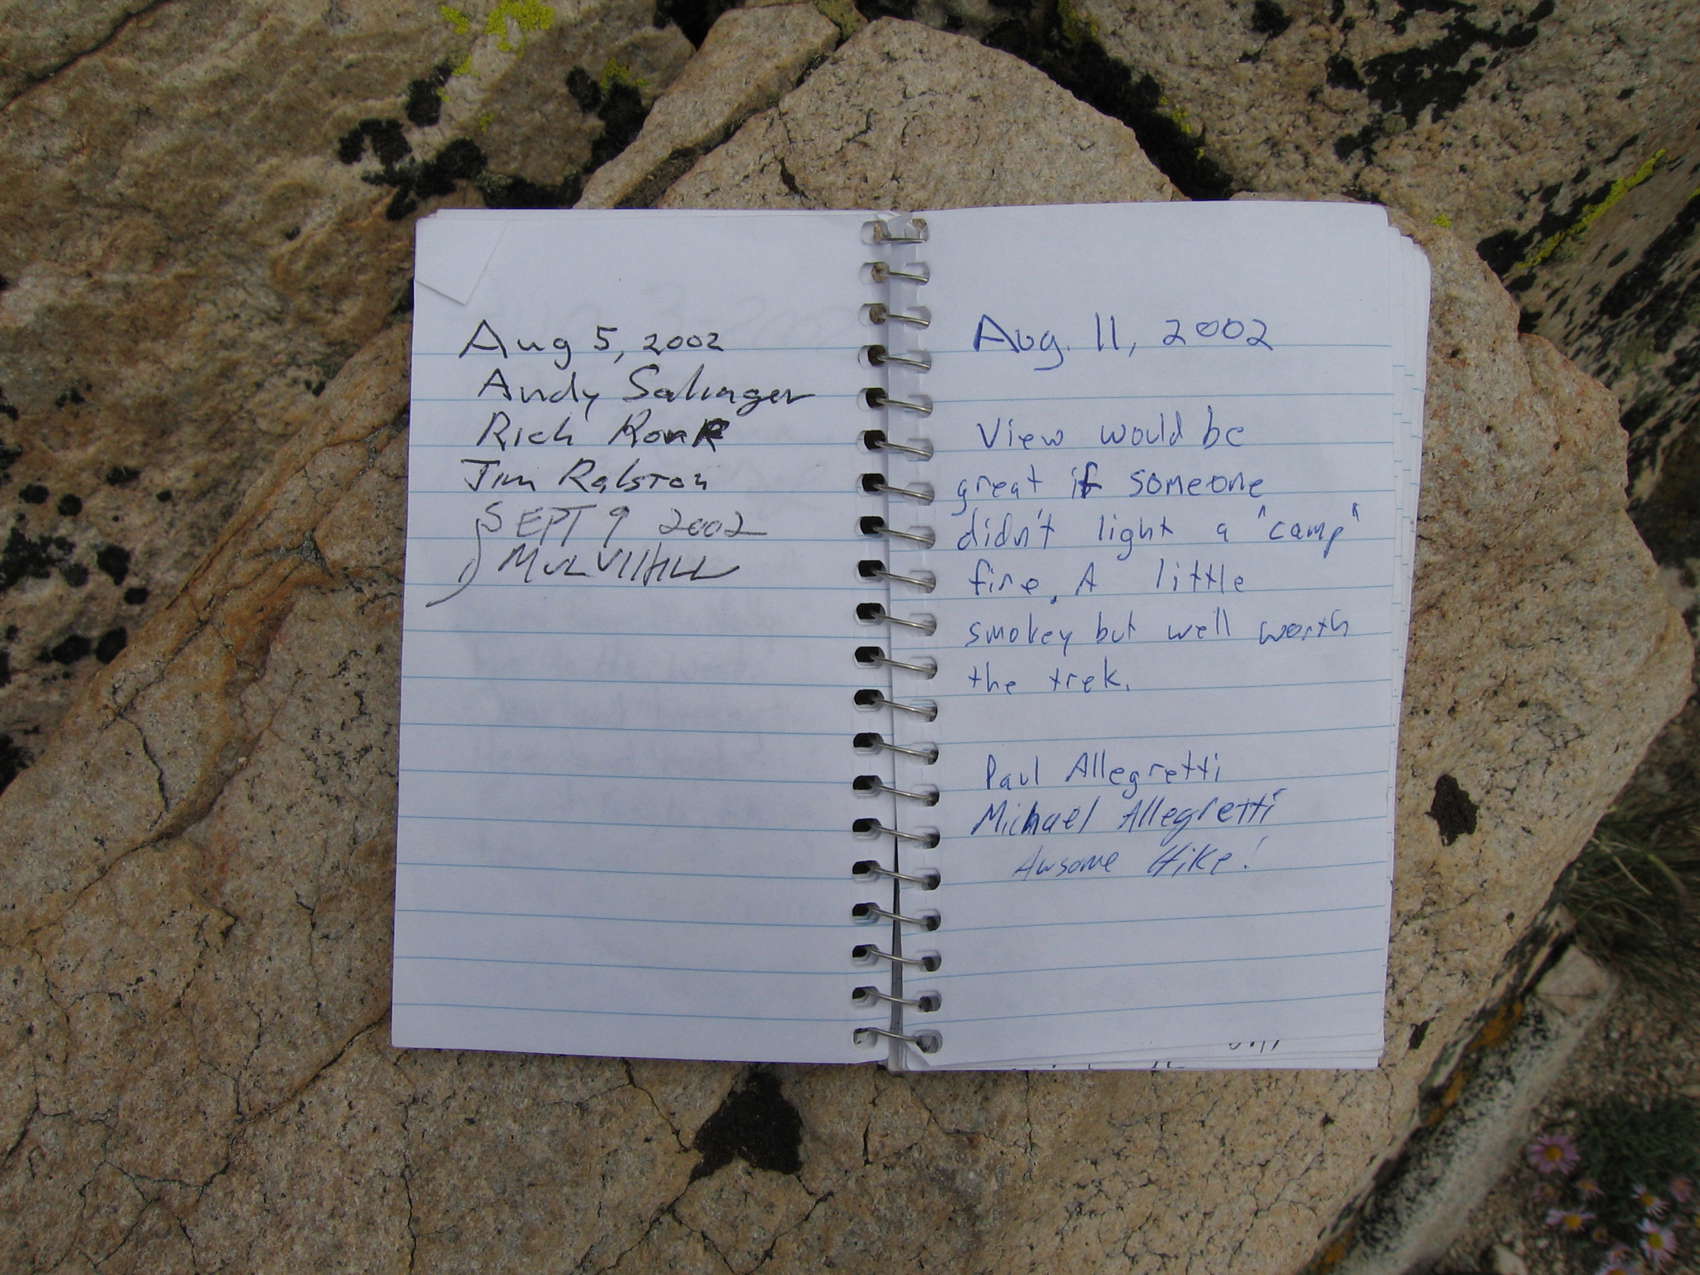 Aug 5, 2002
Andy Salinger
Rich Ronk
Jim Ralston
SEPT 9 2002
MULVIHILL
Aug. 11, 2002
View would be
great if someone
didn't light a "camp"
fire. A little
smokey but well worth
the trek.
Paul Allegretti
Michael Allegretti
Awsome Hike!